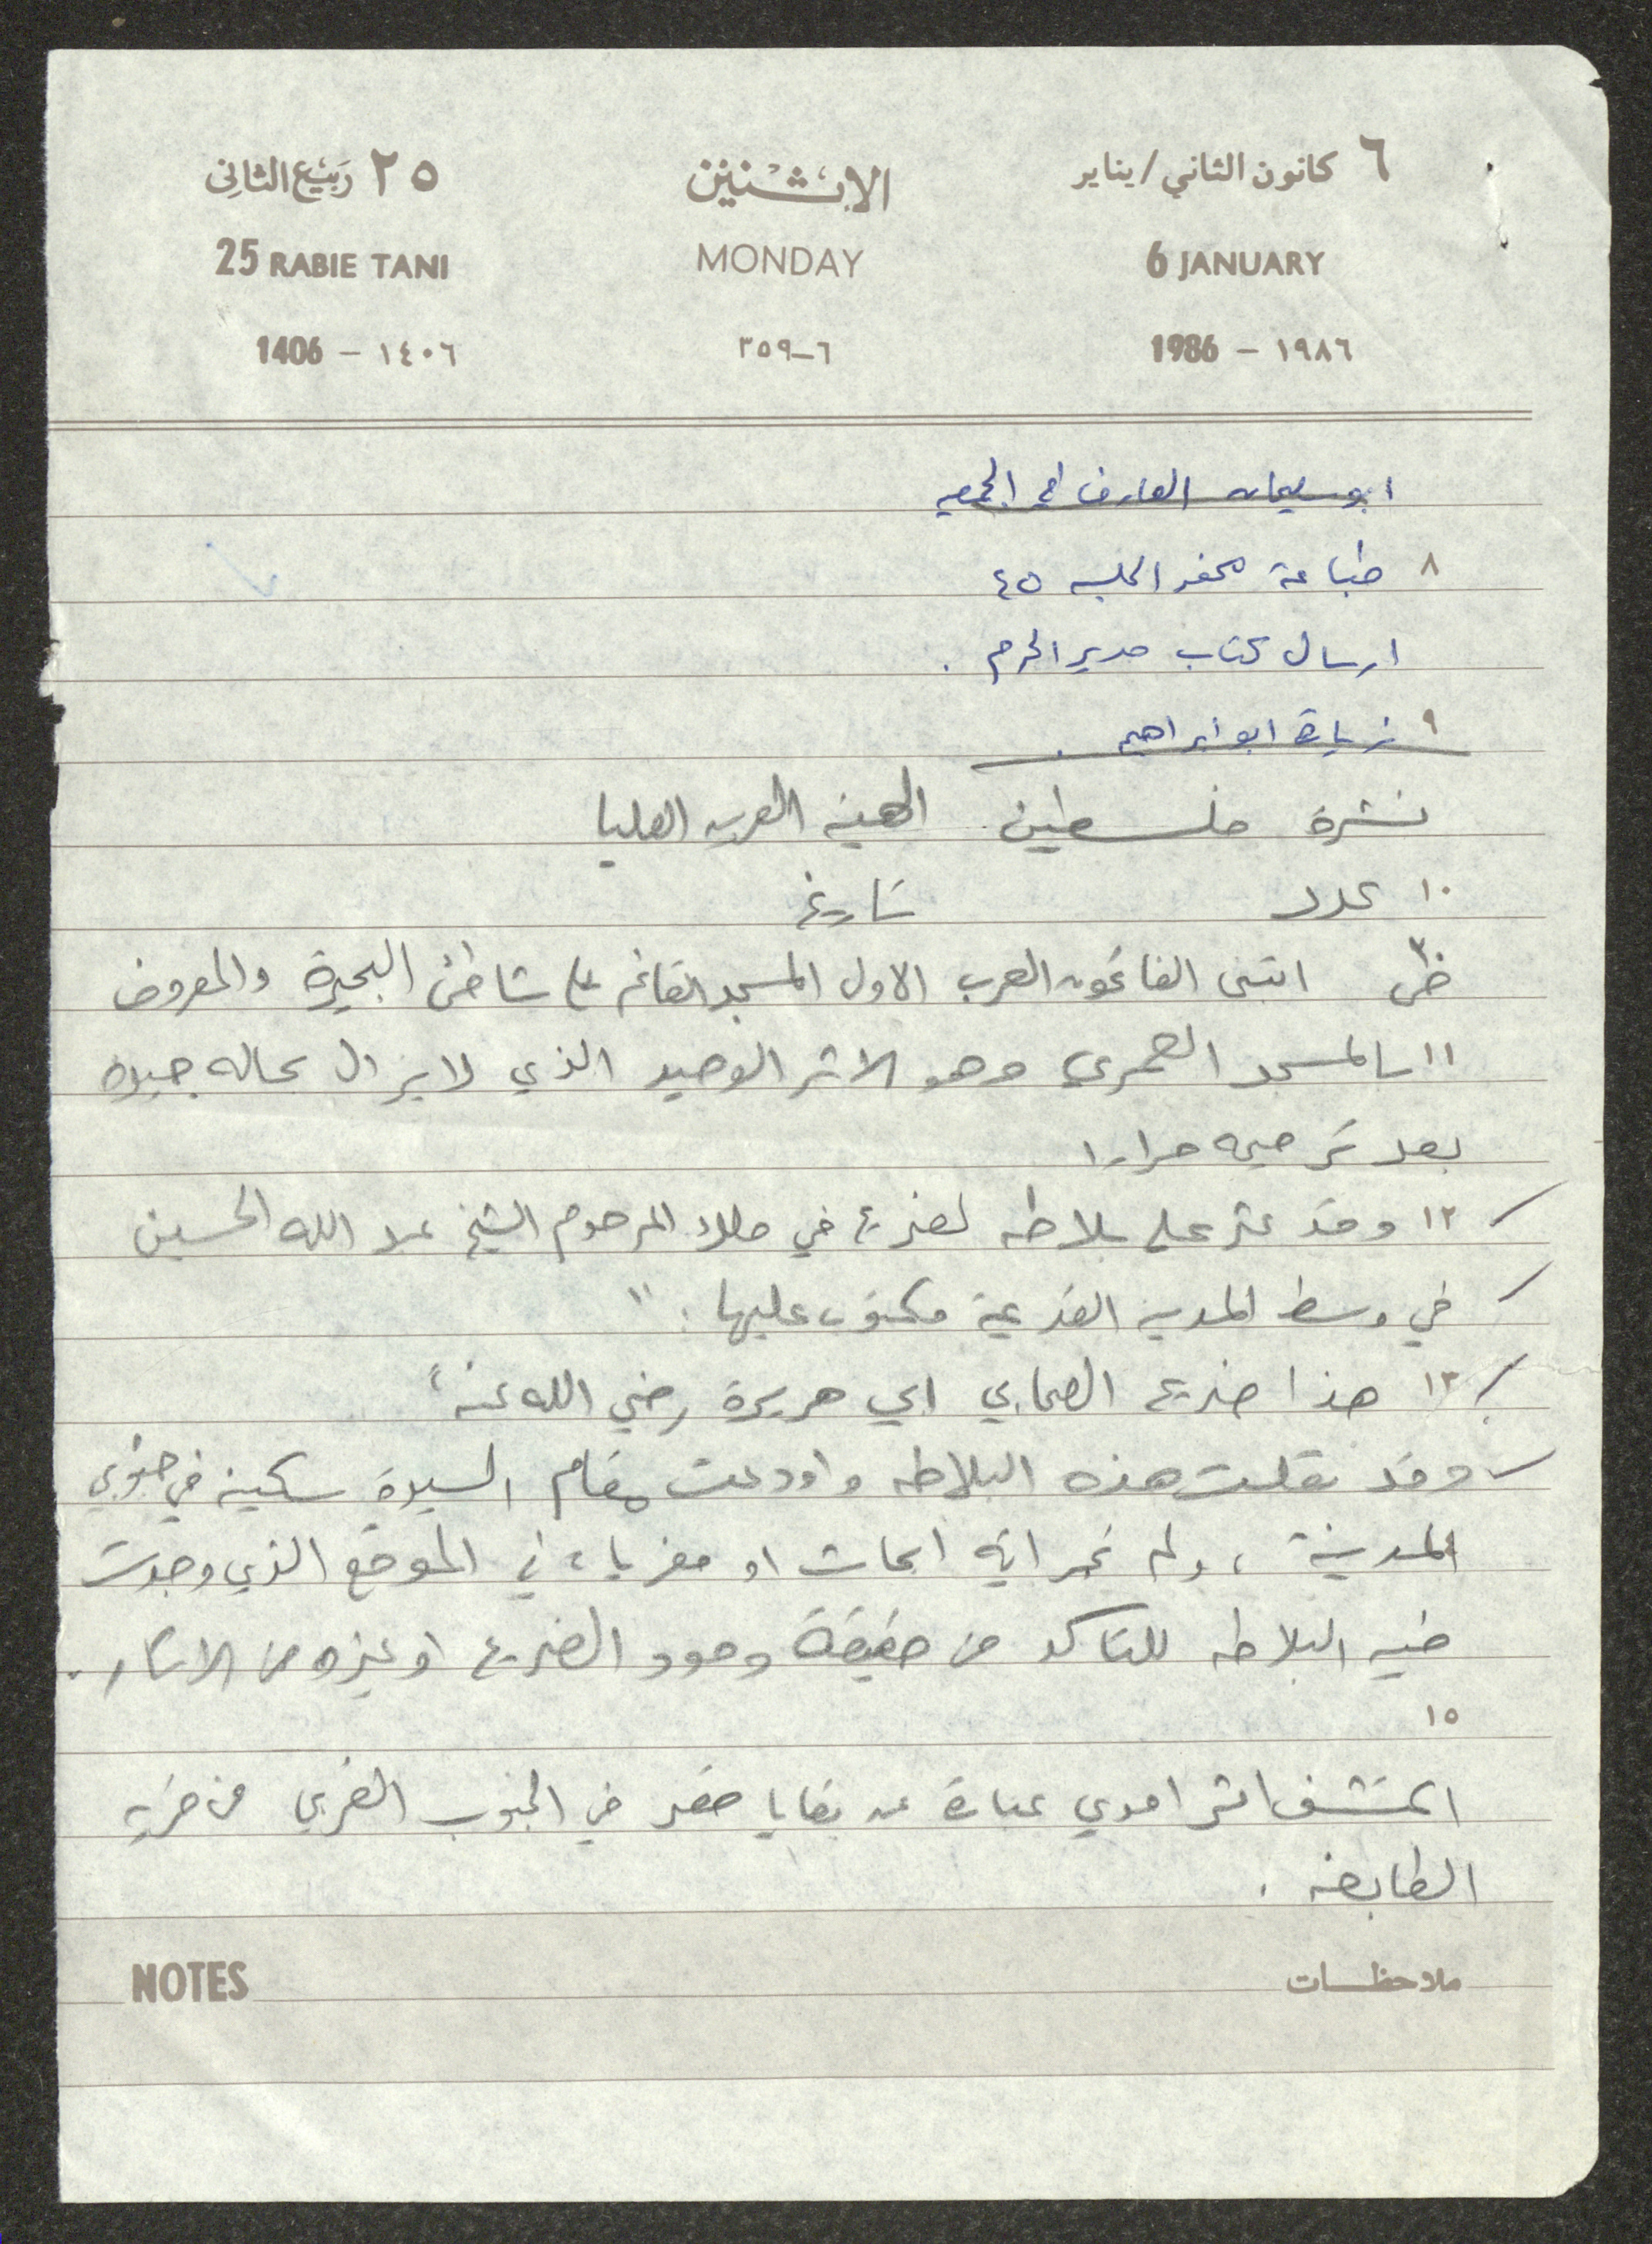 ٦ كانون الثاني/يناير الاثنين ٢٥ ربيع الثاني
6 JANUARY MONDAY 25 RABIE TANI
1986 - ١٩٨٦ ٦-٣٥٩ 1406 - ١٤٠٦
ابو سليمان العارف في الجمعيه
٨ طباعة محضر الجلسه ٤٥
ارسال كتاب مدير الحرم .
٩ زيارة ابو ابراهيم .
نشرة فلسطين الهيئه العربيه العليا
١٠ عدد تاريخ
ابتنى الفاتحون العرب الاول المسجد القائم على شاطئ البحيرة والمعروف
١١ بالمسجد العمري وهو الاثر الوحيد الذي لا يزال بحاله جيده
بعد ترميمه مرارا
١٢ وقد عثر على بلاطه لضريح في ملك المرحوم الشيخ عبد الله الحسين
في وسط المدينه القديمة مكتوب عليها : "
١٣ هذا ضريح الصحابي ابي هريرة رضي الله عنه "
وقد نقلت هذه البلاطه واودعت بمقام السيدة سكينه في جنوبي
المدينة ، ولم تجر ايه ابحاث او حفريات في الموقع الذي وجدت
فيه البلاطه للتأكد من حقيقة وجود الضريح او غيره من الاثار .
١٥
اكتشف اثر اموي عبارة عن بقايا قصر في الجنوب الغربي من خربه
الطابغه .
NOTES ملاحظات